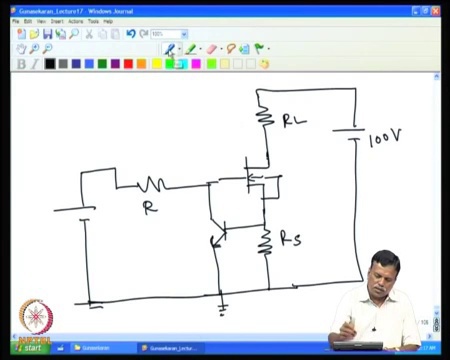 Gunasekaran_Lecture17 - Windows Journal
File Edit View Insert Actions Tools Help
100%
B I
RL
100V
R
RS
start
Gunasekaran
Gunasekaran_Lectu...